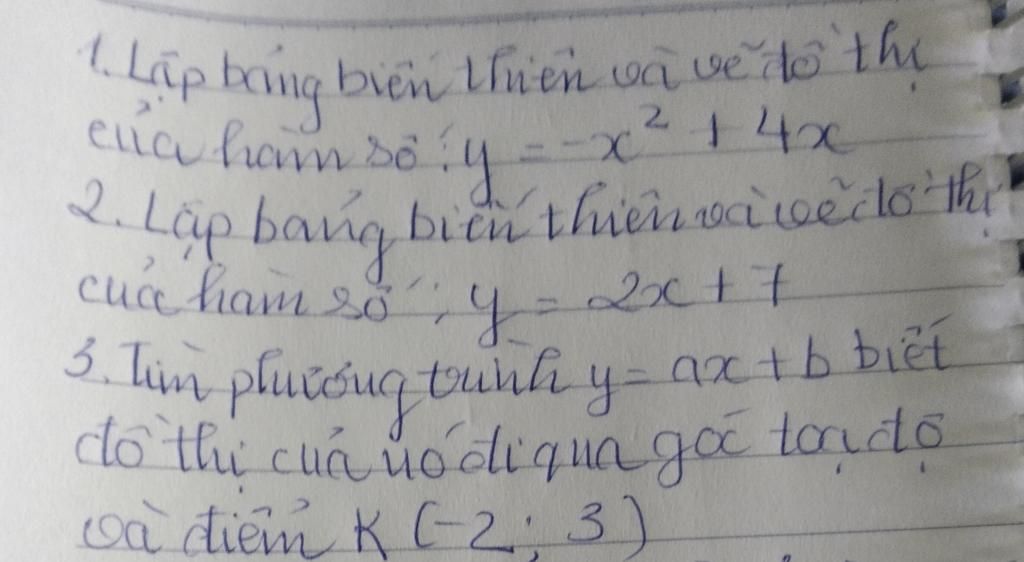 1. Lập bảng biến thiên và vẽ đồ thị
của hàm số: y = -x² + 4x
2. Lập bảng biến thiên và vẽ đồ thị
của hàm số: y = 2x + 7
3. Tìm phương trình y = ax + b biết
đồ thị của nó đi qua gốc toạ độ
và điểm K (-2; 3)